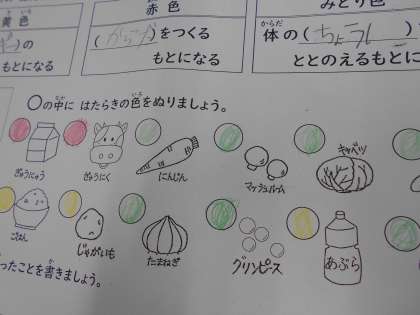 黄色
赤色
みどり色
の
(からだ)をつくる
体の(ちょうし)
からだ
もとになる
もとになる
ととのえるもとに
○の中に はたらきの色をぬりましょう。
なか
いろ
ぎゅうにゅう
ぎゅうにく
にんじん
マッシュルーム
キャベツ
ごはん
じゃがいも
たまねぎ
グリンピース
あぶら
ったことを書きましょう。
か